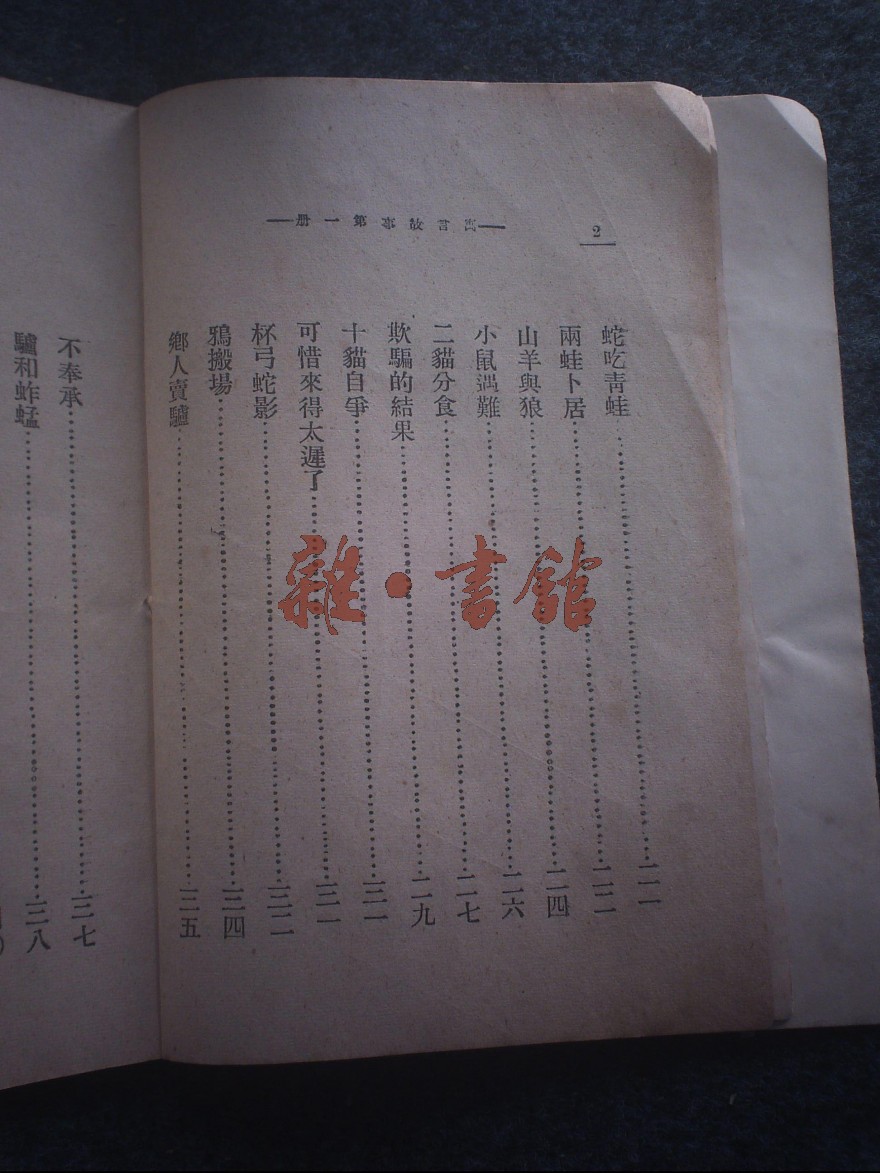 寓言故事第一册
2
蛇吃青蛙……二一
兩蛙卜居……二二
山羊與狼……二四
小鼠遇難……二六
二貓分食……二七
欺騙的結果……二九
十貓自爭……三一
可惜來得太遲了……三一
杯弓蛇影……三二
鴉搬場……三四
鄉人賣驢……三五
不奉承……三七
驢和蚱蜢……三八
雜·書館